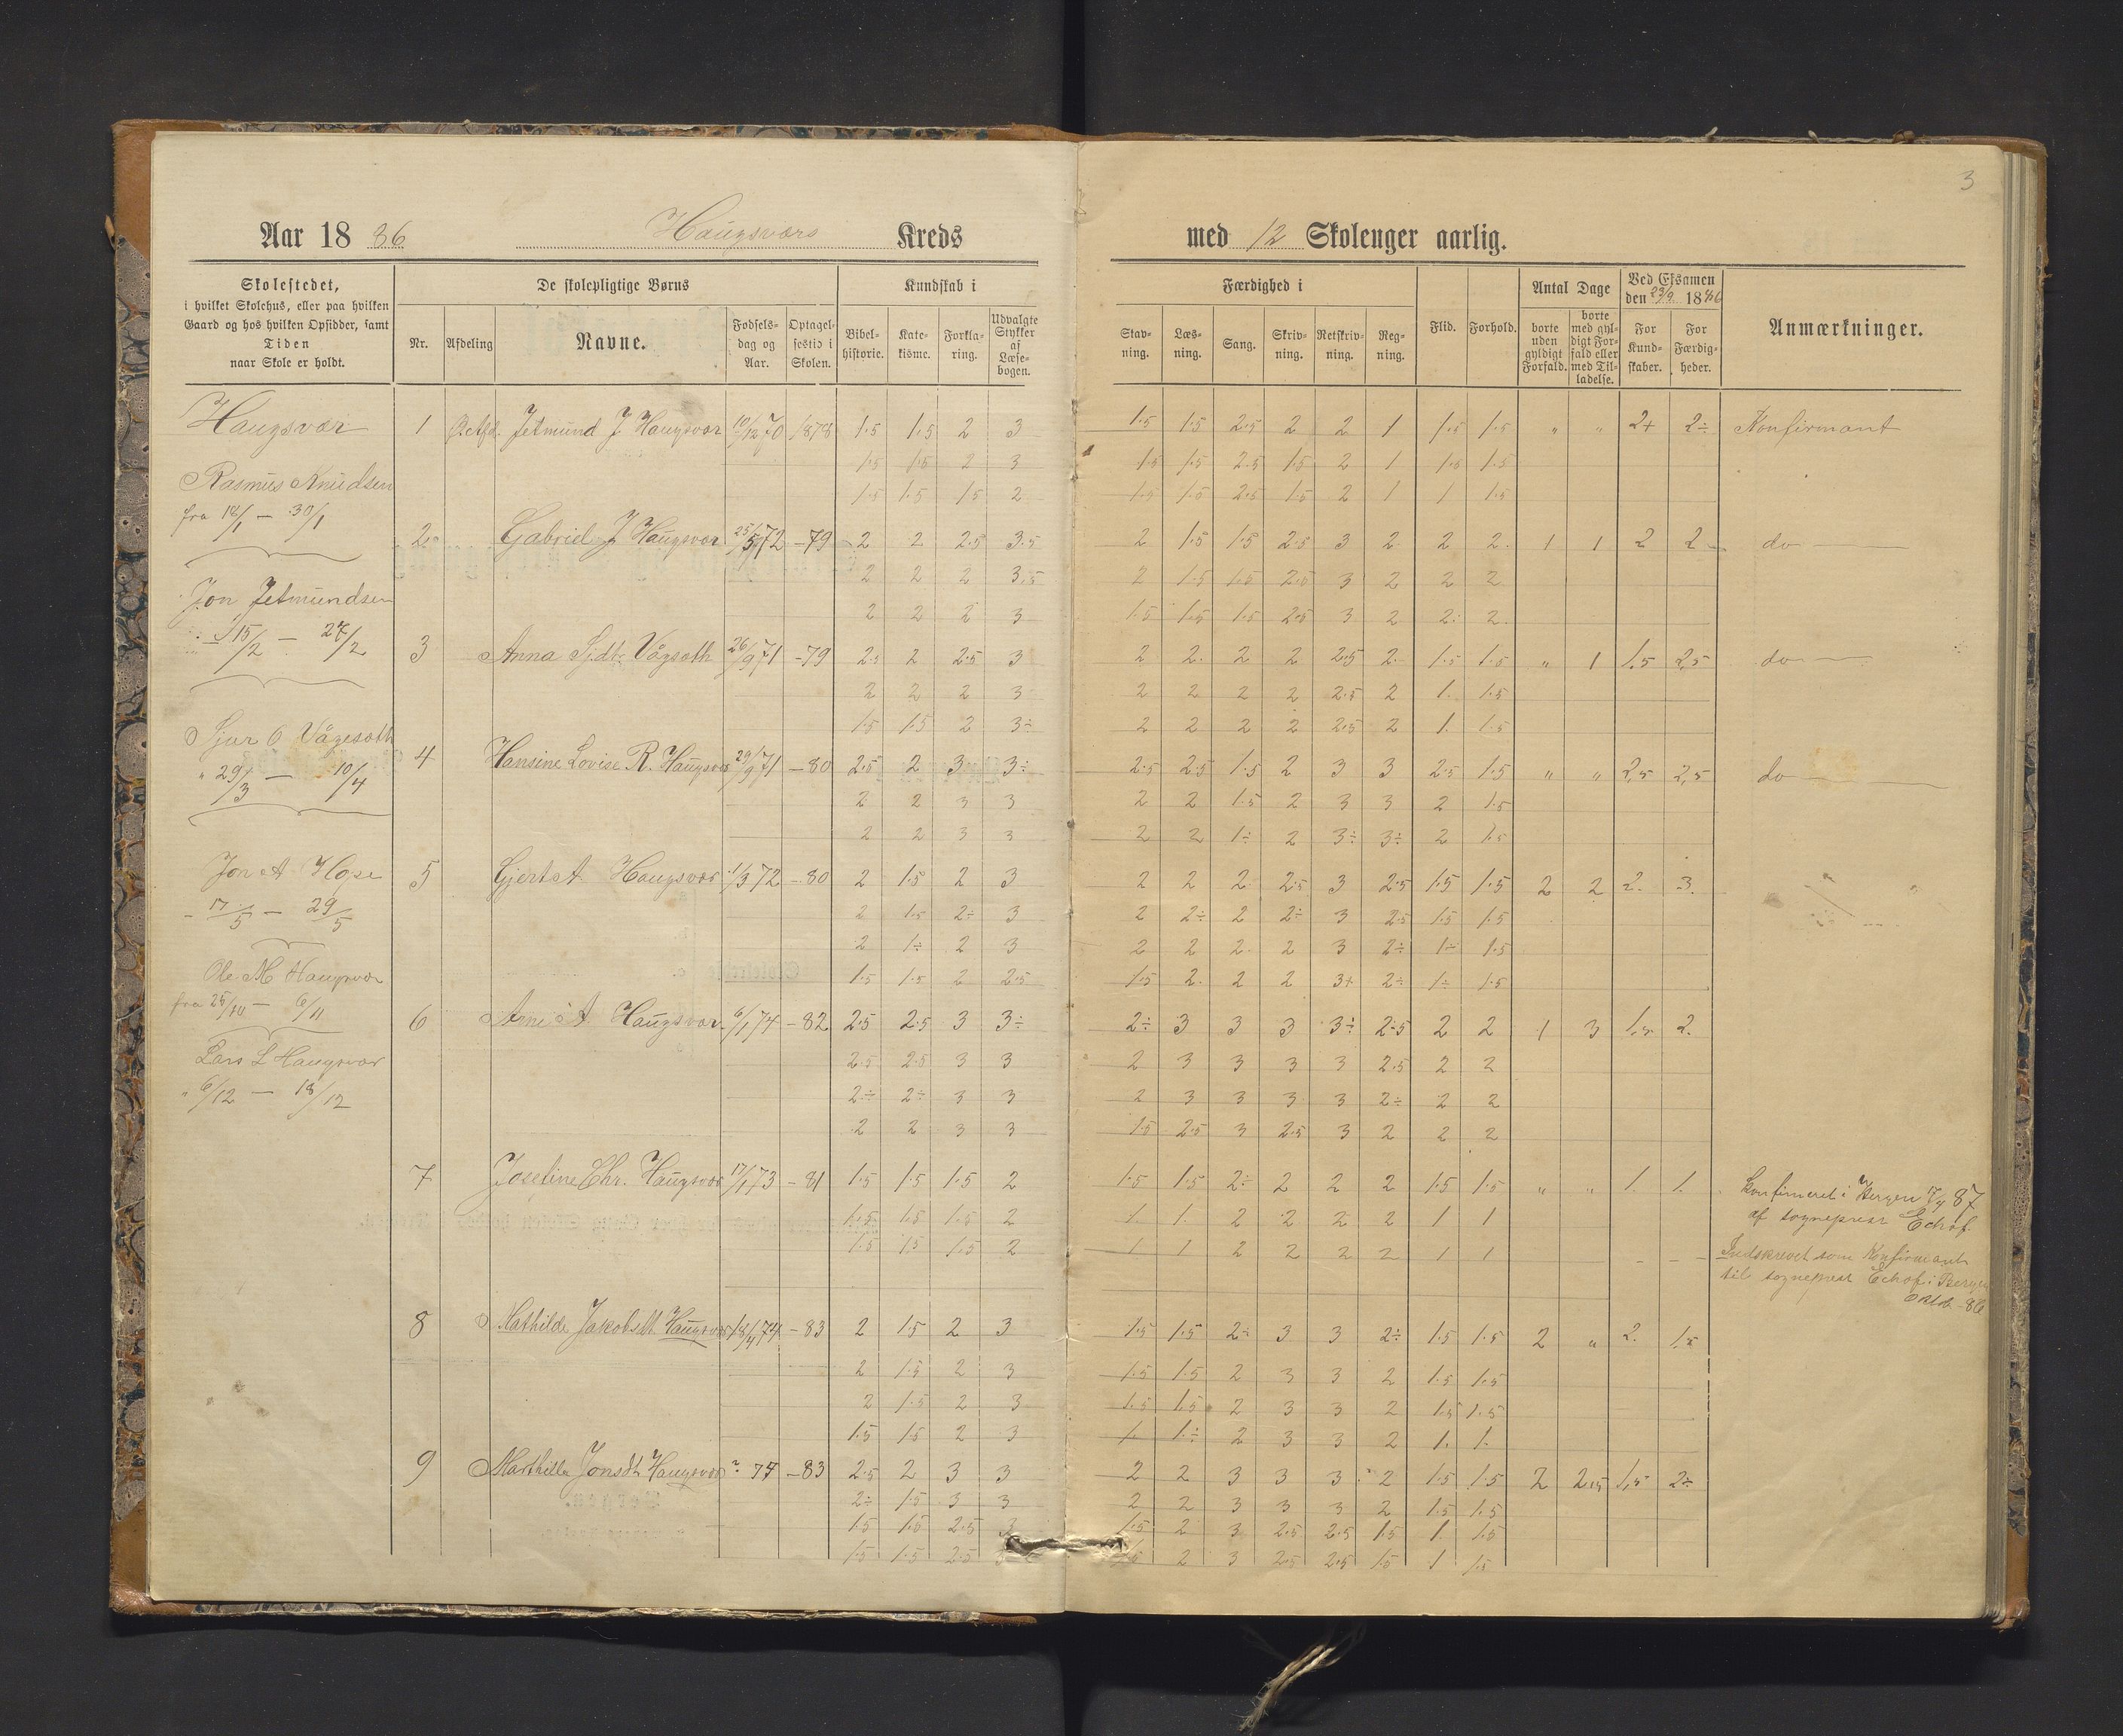 3
Aar 1886 Haugsværs Kreds med 12 Skoleuger aarlig.
Skolestedet,
i hvilket Skolehus, eller paa hvilken
Gaard og hos hvilken Opsidder, samt
Tiden
naar Skole er holdt.
De skolepligtige Børns
Nr. Afdeling Navne. Fødselsdag og Aar. Optagelsestid i Skolen.
Kundskab i
Bibelhistorie. Katekisme. Forklaring. Udvalgte Stykker af Læsebogen.
Færdighed i
Stavning. Læsning. Sang. Skrivning. Retskrivning. Regning.
Flid. Forhold.
Antal Dage
borte uden gyldigt Forfald. borte med gyldigt Forfald eller med Tilladelse.
Ved Eksamen den 23/9 1886
For Kundskaber. For Færdigheder.
Anmærkninger.
Haugsvær
Rasmus Knudsen
fra 18/1 — 30/1
Jon Jetmundsen
15/2 — 27/2
Sjur O Vågesæth
" 29/3 — 10/4
Jon A Hope
- 17/5 — 29/5
Ole M Haugsvær
fra 25/10 — 6/11
Lars L Haugsvær
" 6/12 — 18/12
1 Jetmund J Haugsvær 10/12 70 1878 1.5 1.5 2 3 1.5 1.5 2.5 2 2 1 1.5 1.5 " " 2+ 2÷ Konfirmant
1.5 1.5 2 3 1.5 1.5 2.5 1.5 2 1 1.5 1.5
1.5 1.5 1.5 2 1.5 1.5 2.5 1.5 2 1 1 1.5
2 Gabriel J Haugsvær 25/5 72 -79 2 2 2.5 3.5 2 1.5 1.5 2.5 3 2 2 2 1 1 2 2 do
2 2 2 3.5 2 1.5 1.5 2.5 3 2 2 2
2 2 2 3 1.5 1.5 1.5 2.5 3 2 2 2
3 Anna Sjdtr Vågsæth 26/9 71 -79 2.5 2 2.5 3 2 2 2 2 2.5 2 1.5 1.5 " 1 1.5 2.5 do
2 2 2 3 2 2 2 2 2.5 2 1. 1.5
1.5 1.5 2 3÷ 2 2 2 2 2.5 2 1. 1.5
4 Hansine Lovise R. Haugsvær 29/9 71 -80 2.5 2 3 3÷ 2.5 2.5 1.5 2 3 3 2.5 1.5 " " 2,5 2,5 do
2 2 3 3 2 2 1.5 2 3 3 2 1.5
2 2 3 3 2 2 1÷ 2 3÷ 3÷ 2 1.5
5 Gjert A. Haugsvær 1/3 72 -80 2 1.5 2 3 2 2 2 2.5 3 2.5 1.5 1.5 2 2 2. 3.
2 1.5 2÷ 3 2 2÷ 2 2÷ 3 2.5 1.5 1.5
2 1÷ 2 3 2 2 2 2 3 2÷ 1÷ 1.5
1.5 1.5 2 2.5 1.5 2. 2 2 3+ 2÷ 1÷ 1.5
6 Arne A Haugsvær 6/1 74 -82 2.5 2.5 3 3÷ 2÷ 3 3 3 3÷ 2.5 2 2 1 3 1.5 2.
2.5 2.5 3 3 2 3 3 3 3 2.5 2 2
2÷ 2÷ 3 3 2 3 3 3 3 2÷ 2 2
2 2 3 3 1.5 2.5 3 2.5 3 2 2 2
7 Joseline Chr. Haugsvær 17/1 73 -81 1.5 1.5 1.5 2 1.5 1.5 2÷ 2 2 2 1.5 1.5 " " 1. 1. Konfirmeret i Bergen 17/4 87
af sogneprest Echof
1.5 1.5 1.5 2 1. 1. 2 2 2 2 1 1
1.5 1.5 1.5 2 1 1 2 2 2 2 1 1 Indskrevet som Konfirmant
til sogneprest Echof i Bergen
Oktb -86
8 Mathilde Jakobsdt Haugsvær 18/4 74 -83 2 1.5 2 3 1.5 1.5 2÷ 3 3 2÷ 1.5 1.5 2 " 2. 1.5
2 1.5 2 3 1.5 1.5 2 3 3 2 1.5 1.5
2 1.5 2 3 1.5 1.5 2 3 3 2 1.5 1.5
1.5 1.5 2 3 1. 1÷ 2 3 3 2 1. 1.
9 Jonsdt Haugsvær ? 74 -83 2.5 2 3 3 2 2 3 3 3 2 1.5 1.5 2 1,5 2÷
2÷ 1.5 3 3 2 2 3 3 3 2 1.5 1.5
1.5 1.5 2.5 3 1.5 2 3 2.5 2.5 1.5 1 1.5
1.5 1.5 2.5 1.5 2 3 2.5 2.5 1.5 1 1.5